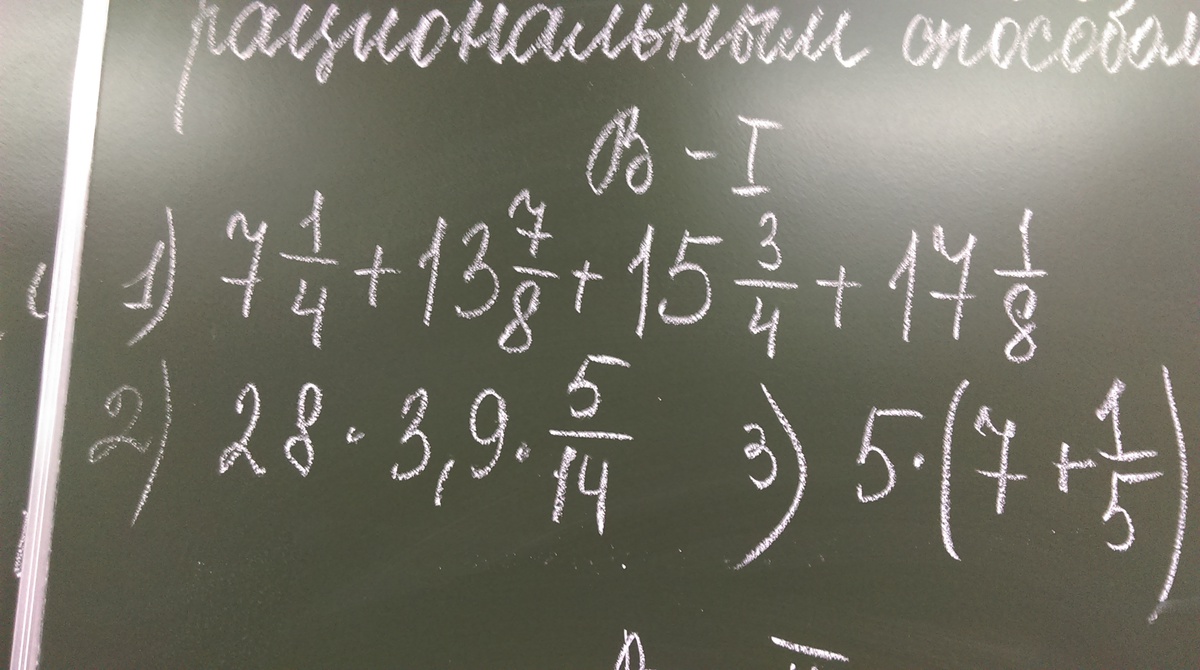 рациональным способом
В - I
1) 7 1/4 + 13 7/8 + 15 3/4 + 17 1/8
2) 28 · 3,9 · 5/14 3) 5 · (7 + 1/5)